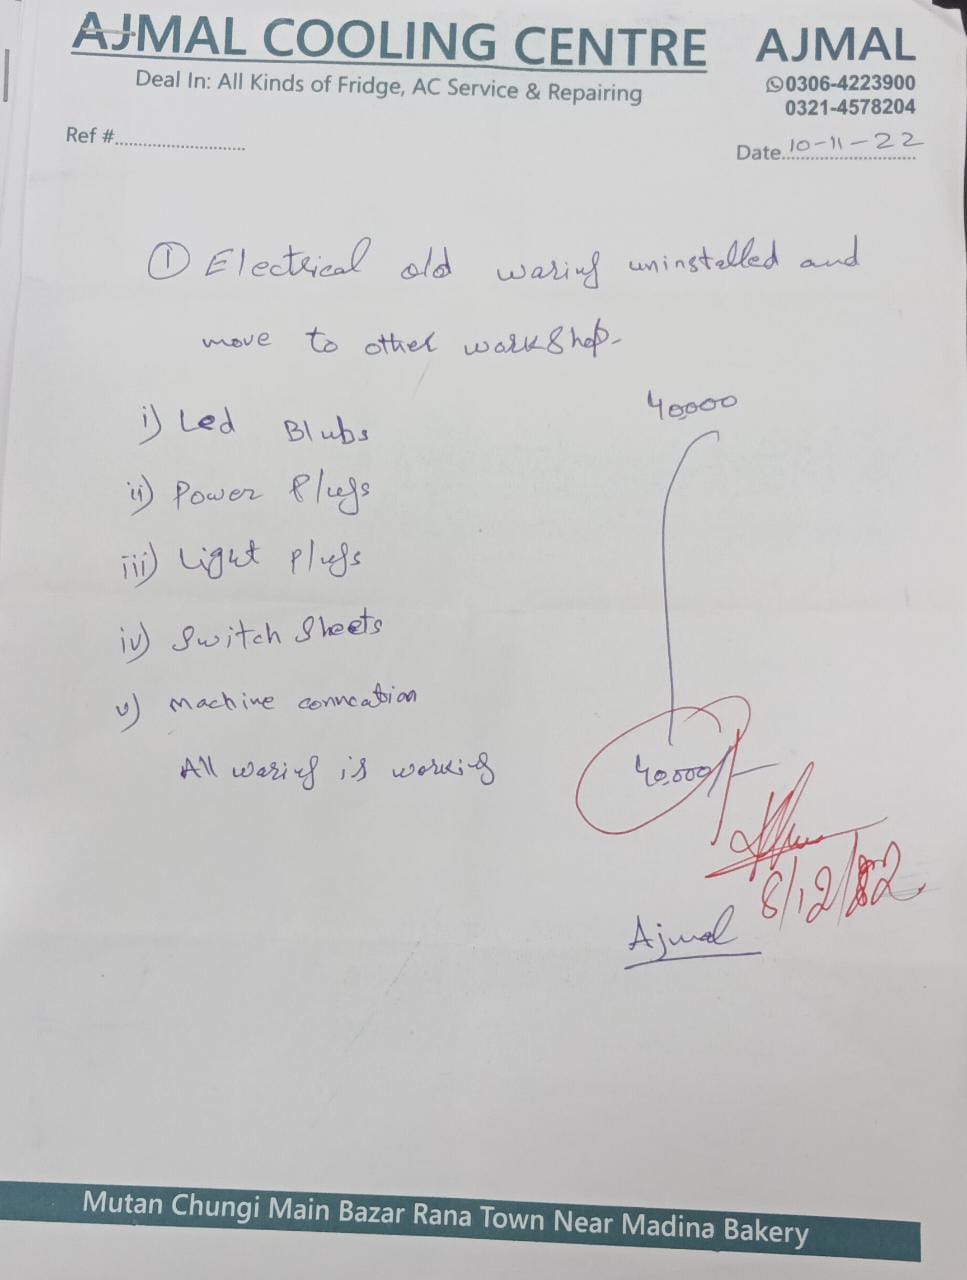 AJMAL COOLING CENTRE
Deal In: All Kinds of Fridge, AC Service & Repairing
AJMAL
0306-4223900
0321-4578204
Ref #
Date 10-11-22
① Electrical old waring uninstalled and
move to other workshop-
40000
i) Led Blubs
ii) Power Plugs
iii) Light plugs
iv) Switch Sheets
v) Machine conncation
All waring is working
40,000/-
8/12/22
Ajmal
Mutan Chungi Main Bazar Rana Town Near Madina Bakery